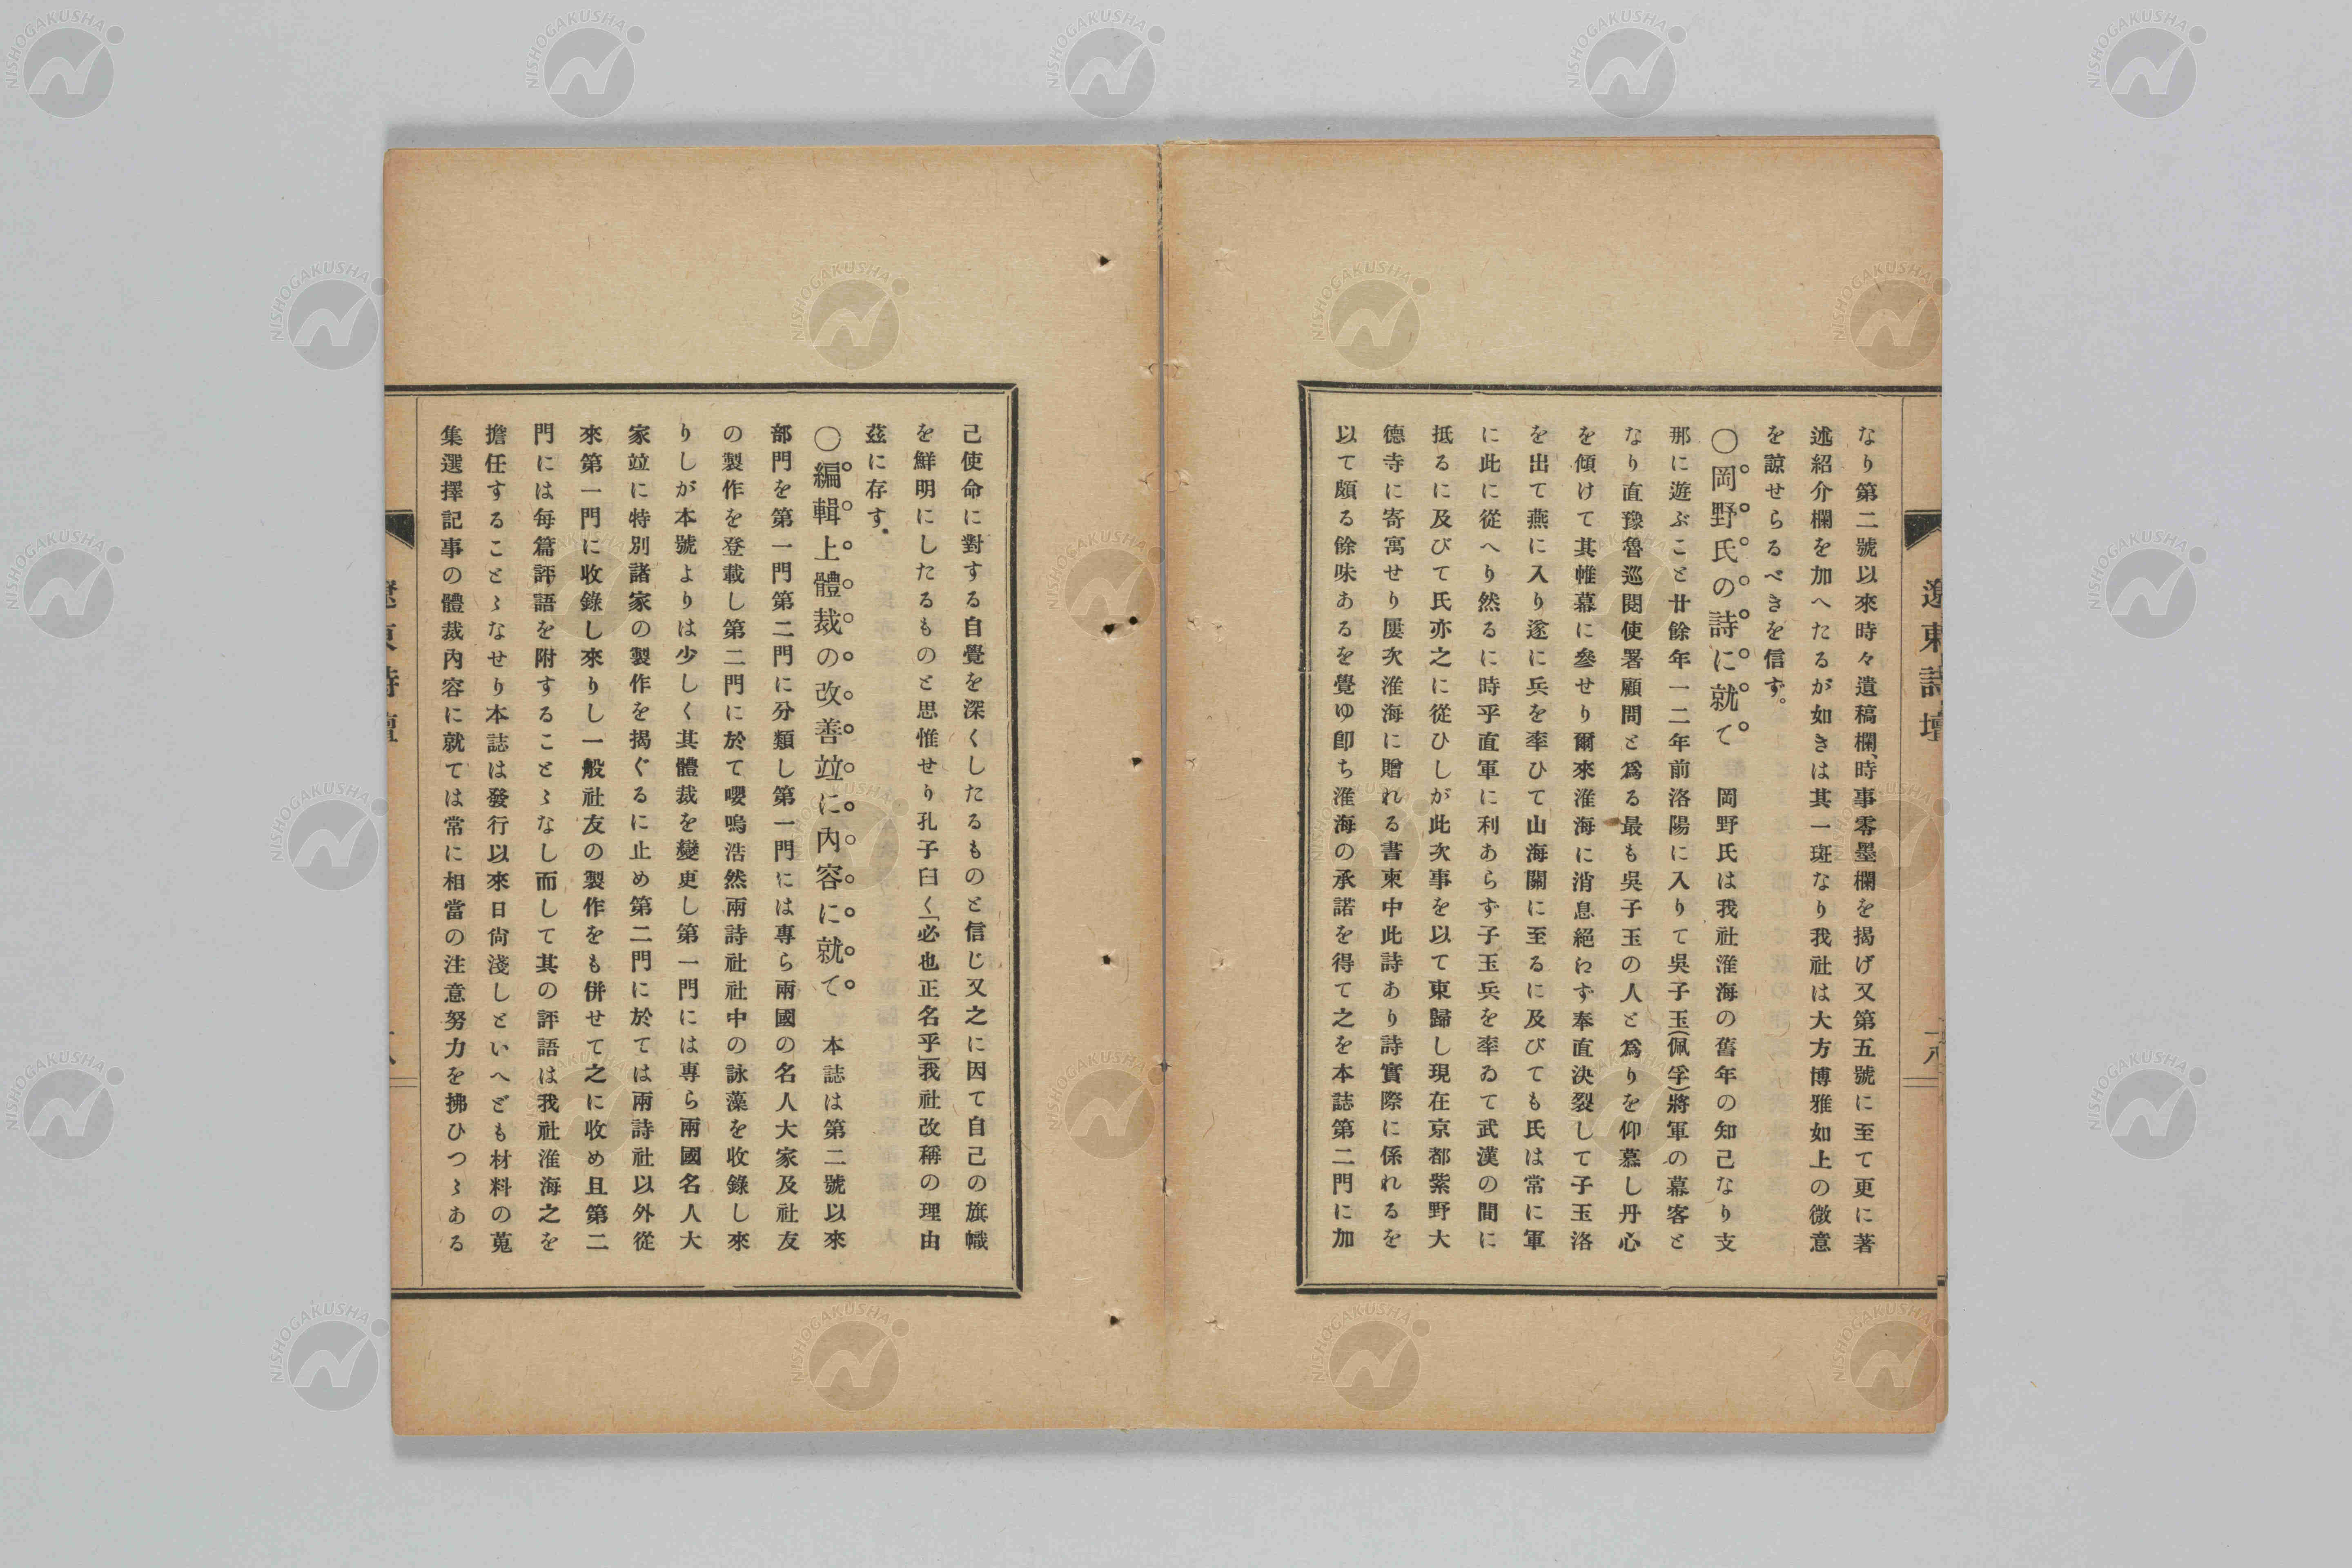 遼東詩壇
十八
なり第二號以來時々遺稿欄、時事零墨欄を揭げ又第五號に至て更に著
述紹介欄を加へたるが如きは其一斑なり我社は大方博雅如上の微意
を諒せらるべきを信ず。
〇岡野氏の詩に就て　岡野氏は我社淮海の舊年の知己なり支
那に遊ぶこと廿餘年一二年前洛陽に入りて吳子玉(佩孚)將軍の幕客と
なり直豫魯巡閱使署顧問と爲る最も吳子玉の人と爲りを仰慕し丹心
を傾けて其帷幕に參せり爾來淮海に消息絕えず奉直決裂して子玉洛
を出て燕に入り遂に兵を率ひて山海關に至るに及びても氏は常に軍
に此に從へり然るに時乎直軍に利あらず子玉兵を率ゐて武漢の間に
抵るに及びて氏亦之に從ひしが此次事を以て東歸し現在京都紫野大
德寺に寄寓せり屢次淮海に贈れる書柬中此詩あり詩實際に係れるを
以て頗る餘味あるを覺ゆ卽ち淮海の承諾を得て之を本誌第二門に加
己使命に對する自覺を深くしたるものと信じ又之に因て自己の旗幟
を鮮明にしたるものと思惟せり孔子曰く「必也正名乎」我社改稱の理由
玆に存す。
〇編輯上體裁の改善竝に內容に就て　本誌は第二號以來
部門を第一門第二門に分類し第一門には專ら兩國の名人大家及社友
の製作を登載し第二門に於て嚶鳴浩然兩詩社社中の詠藻を收錄し來
りしが本號よりは少しく其體裁を變更し第一門には專ら兩國名人大
家竝に特別諸家の製作を揭ぐるに止め第二門に於ては兩詩社以外從
來第一門に收錄し來りし一般社友の製作をも併せて之に收め且第二
門には每篇評語を附することゝなし而して其の評語は我社淮海之を
擔任することゝなせり本誌は發行以來日尙淺しといへども材料の蒐
集選擇記事の體裁內容に就ては常に相當の注意努力を拂ひつゝある
NISHOGAKUSHA